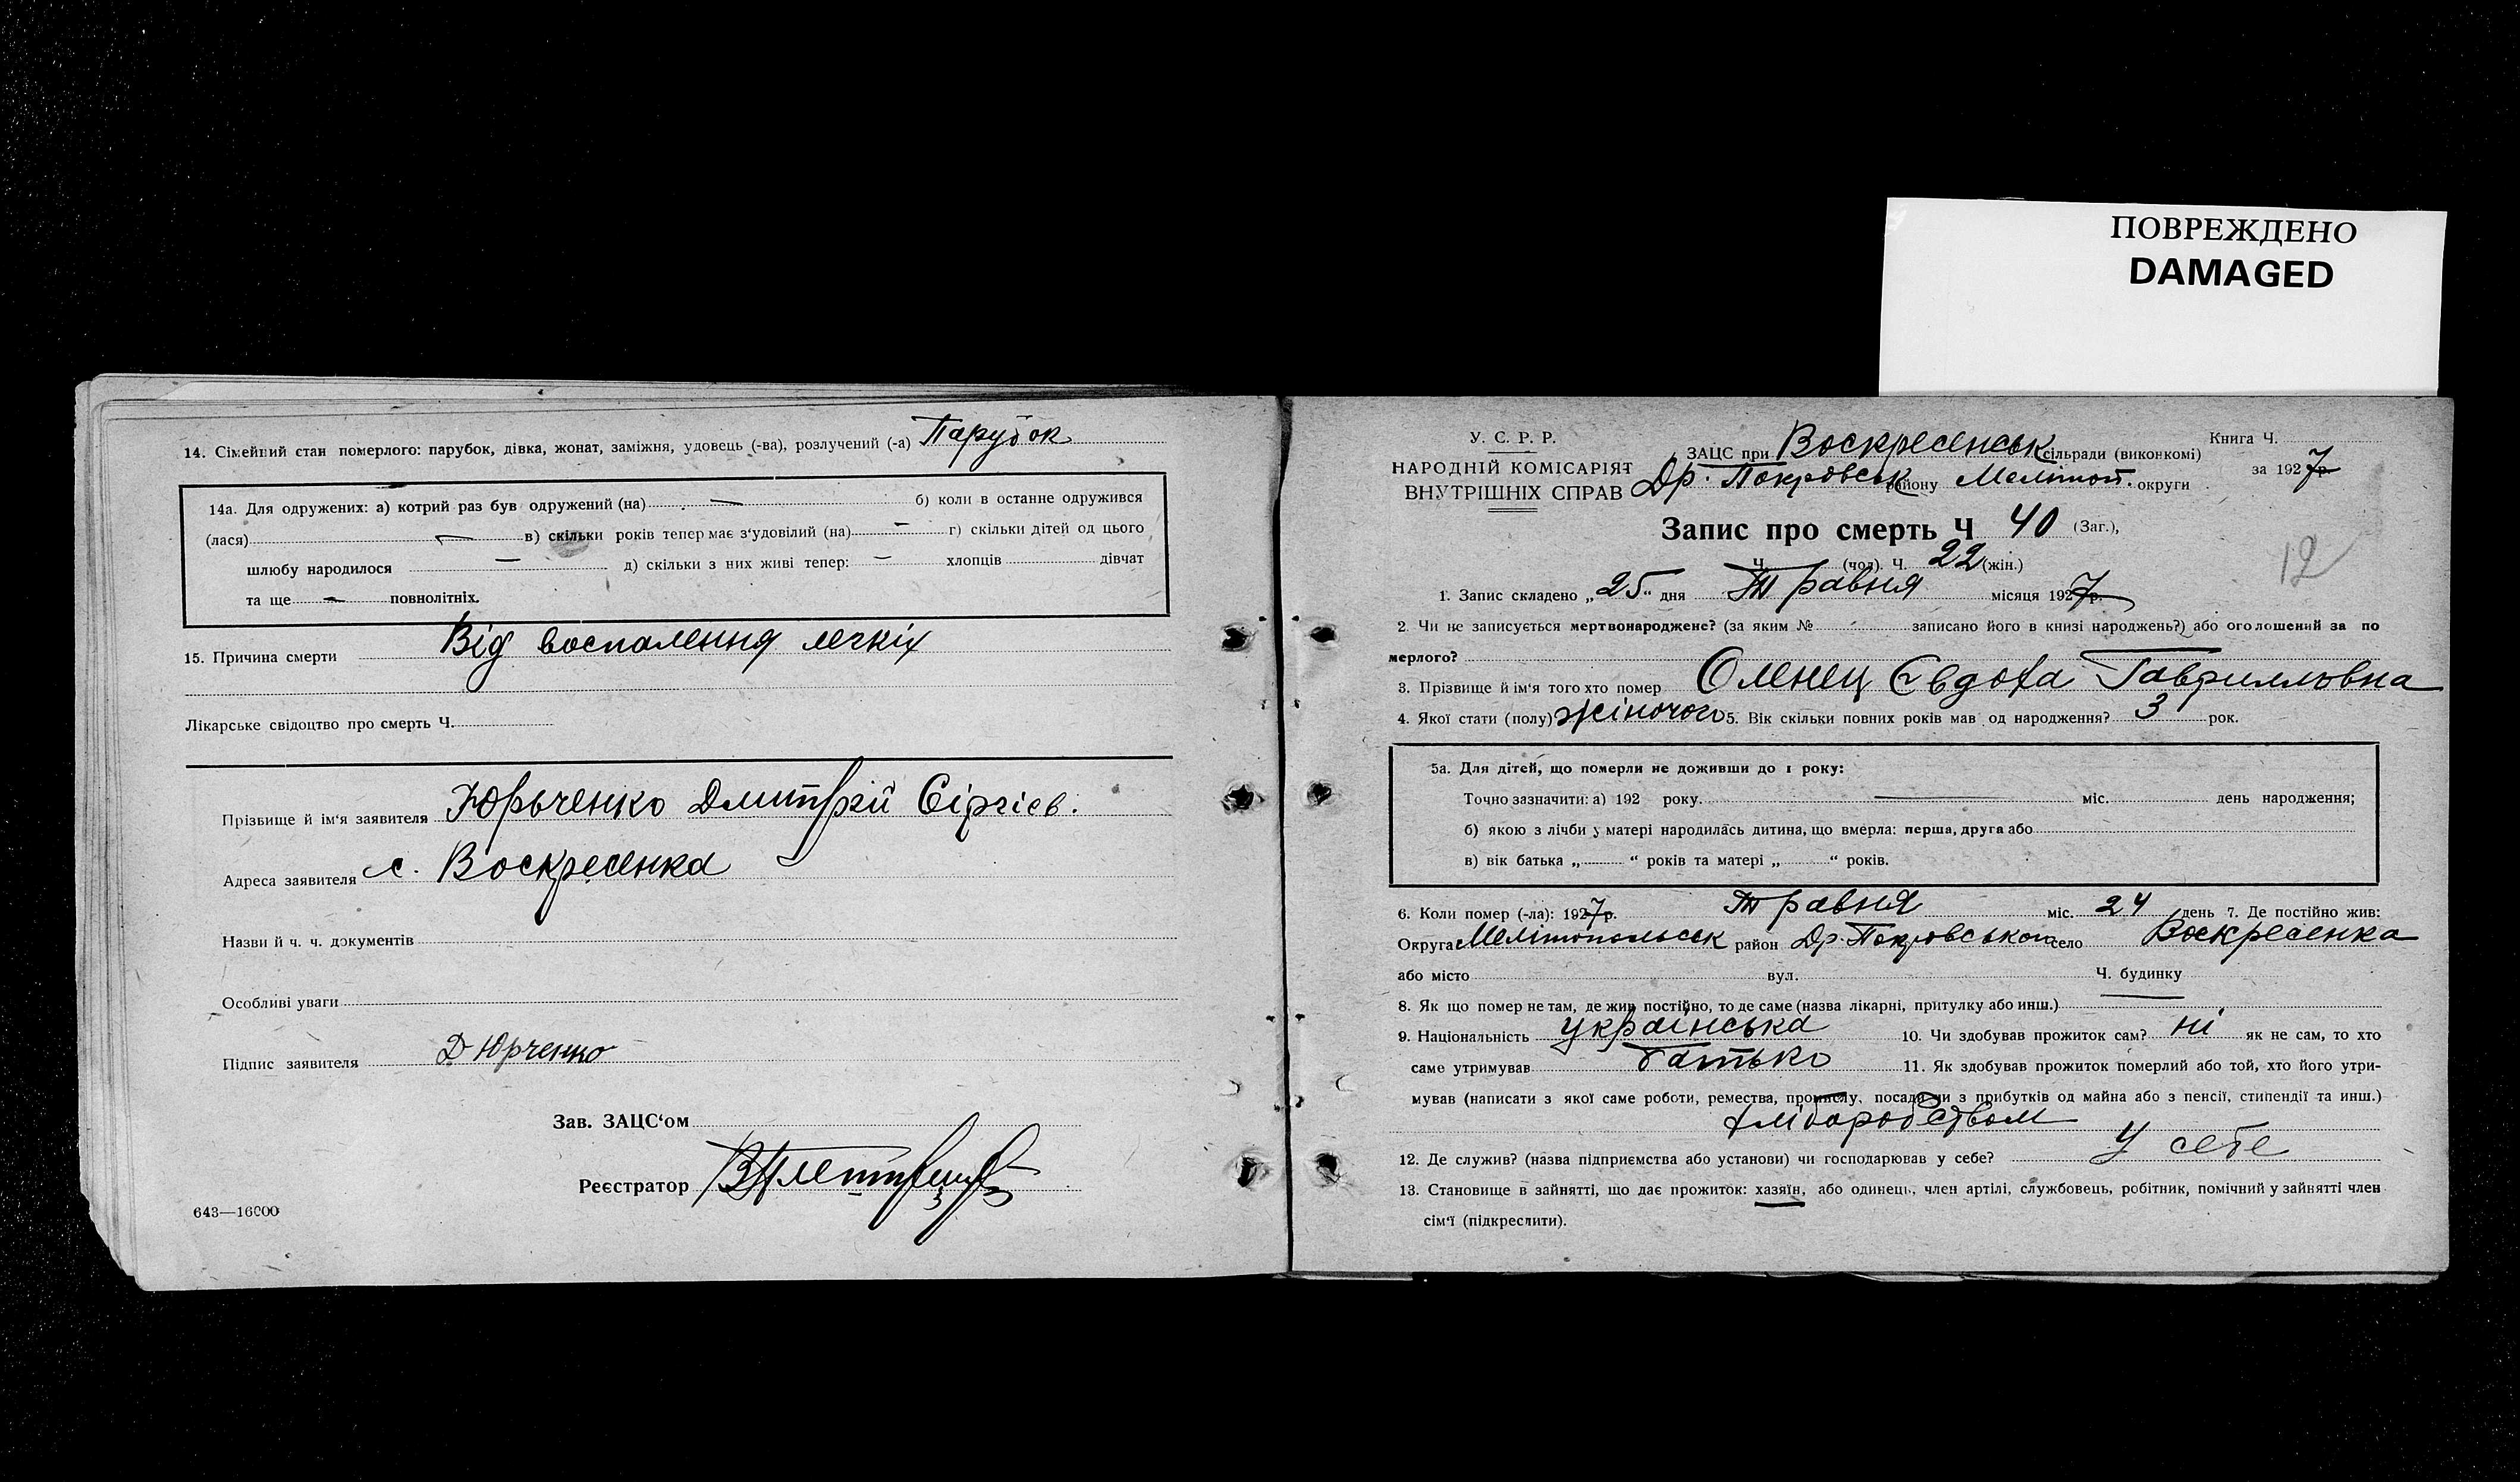 ПОВРЕЖДЕНО
DAMAGED
14. Сімейний стан померлого: парубок, дівка, жонат, заміжня, удовець (-ва), розлучений (-а) Парубок
14а. Для одружених: а) котрий раз був одружений (на) — б) коли в останне одружився
(лася) — в) скільки років тепер має з‘удовілий (на) — г) скільки дітей од цього
шлюбу народилося — д) скільки з них живі тепер: — хлопців дівчат
та ще — повнолітніх.
15. Причина смерти Від воспалення легкіх
Лікарське свідоцтво про смерть Ч.
Прізвище й ім‘я заявителя Юрьченко Дмитрій Сіргієв.
Адреса заявителя с. Воскресенка
Назви й ч. ч. документів
Особливі уваги
Підпис заявителя Д Юрченко
Зав. ЗАЦС‘ом
Реєстратор
643—16000
У. С. Р. Р.
НАРОДНІЙ КОМІСАРІЯТ
ВНУТРІШНІХ СПРАВ
ЗАЦС при Воскресенськ сільради (виконкомі)
Др. Покровськ району Меліттоп. округи
Книга Ч.
за 1927р
Запис про смерть Ч 40 (Заг.),
Ч. (чол). Ч. 22 (жін.)
12
1. Запис складено „25“ дня Травня місяця 1927р.
2. Чи не записується мертвонароджене? (за яким № записано його в книзі народжень?) або оголошений за по
мерлого?
3. Прізвище й ім‘я того хто помер Оленец Євдоха Гаврилловна
4. Якої стати (полу) жіночого 5. Вік скільки повних років мав од народження? 3 рок.
5а. Для дітей, що померли не доживши до 1 року:
Точно зазначити: а) 192 року. — міс. день народження;
б) якою з лічби у матері народилась дитина, що вмерла: перша, друга або
в) вік батька „ “ років та матері „ “ років.
6. Коли помер (-ла): 1927р. Травня міс. 24 день 7. Де постійно жив:
Округа Мелітопольськ район Др. Покровського село Воскресенка
або місто вул. Ч. будинку
8. Як що помер не там, де жив постійно, то де саме (назва лікарні, притулку або инш.)
9. Національність українська 10. Чи здобував прожиток сам? ні як не сам, то хто
саме утримував батько 11. Як здобував прожиток померлий або той, хто його утри-
мував (написати з якої саме роботи, ремества, промислу, посади чи з прибутків од майна або з пенсії, стипендії та инш.)
хліборобством
12. Де служив? (назва підприємства або установи) чи господарював у себе? у себе
13. Становище в зайнятті, що дає прожиток: хазяїн, або одинець, член артілі, службовець, робітник, помічний у зайнятті член
сім‘ї (підкреслити).